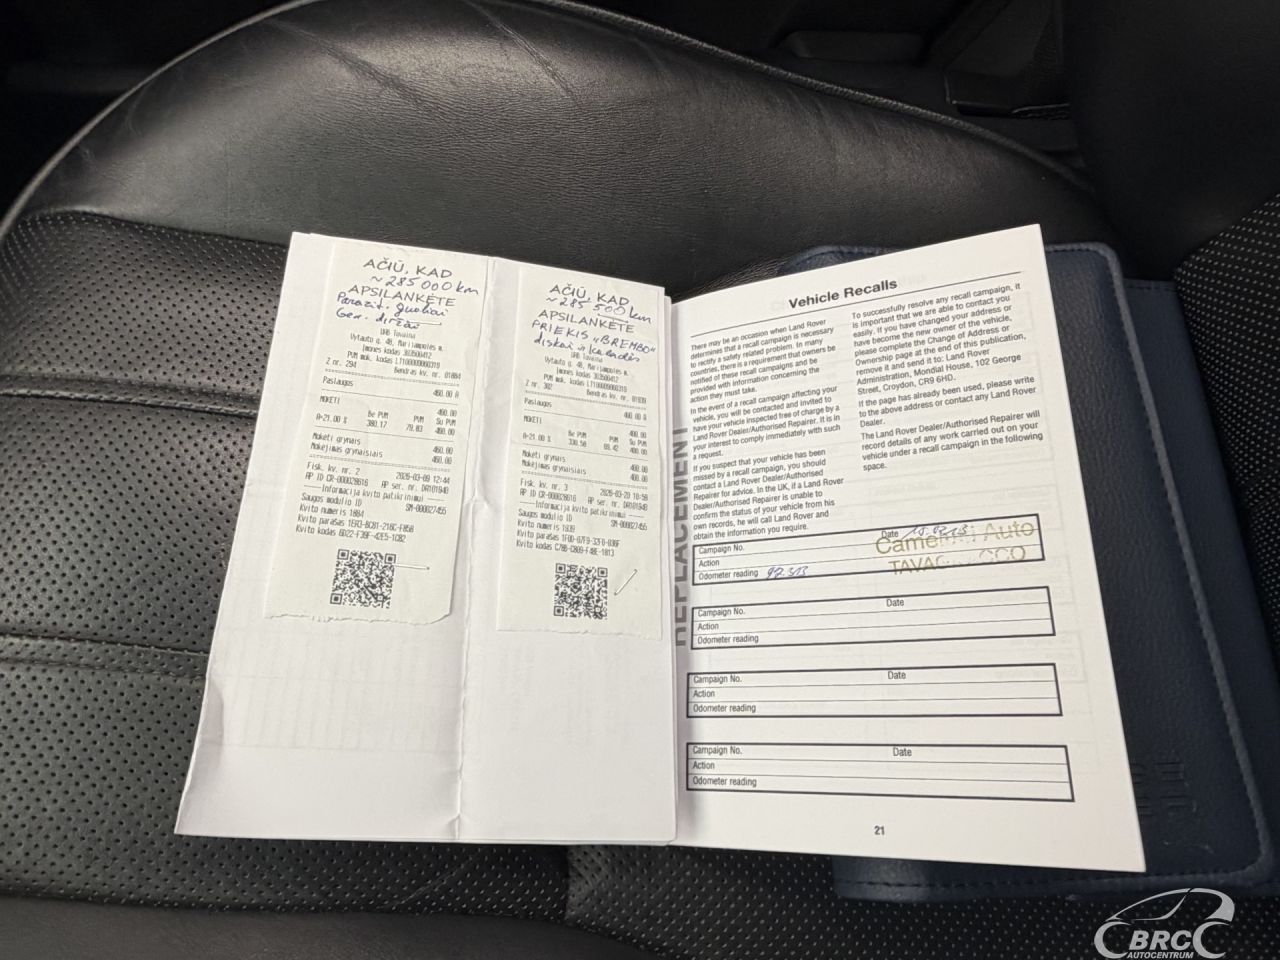 AČIŪ, KAD
~ 285 000 km
APSILANKĖTE
Parazit. guoliai
Gen. diržai
UAB Tavaina
Vytauto g. 48, Marijampolės m.
Įmonės kodas 303506412
PVM mok. kodas LT100009060319
Z nr. 294 Bendras kv. nr. 01884
Paslaugos 460.00 A
MOKĖTI 460.00
Be PVM PVM Su PVM
A=21.00 % 380.17 79.83 460.00
Mokėti grynais 460.00
Mokėjimas grynaisiais 460.00
Fisk. kv. nr. 2 2026-03-09 12:44
AP ID CR-000028616 AP ser. nr. DA101948
Informacija kvito patikrinimui
Saugos modulio ID SM-000027455
Kvito numeris 1884
Kvito parašas
Kvito kodas
AČIŪ, KAD
~ 285 500 km
APSILANKĖTE
PRIEKIS „BREMBO"
diskai ir kaladės
UAB Tavaina
Vytauto g. 48, Marijampolės m.
Įmonės kodas 303506412
PVM mok. kodas LT100009060319
Z nr. 302 Bendras kv. nr. 01939
Paslaugos 400.00 A
MOKĖTI 400.00
Be PVM PVM Su PVM
A=21.00 % 330.58 69.42 400.00
Mokėti grynais 400.00
Mokėjimas grynaisiais 400.00
Fisk. kv. nr. 3 2026-03-20 10:59
AP ID CR-000028616 AP ser. nr. DA101948
Informacija kvito patikrinimui
Saugos modulio ID SM-000027455
Kvito numeris 1939
Kvito parašas
Kvito kodas
REPLACEMENT
Vehicle Recalls
There may be an occasion when Land Rover
determines that a recall campaign is necessary
to rectify a safety related problem. In many
countries, there is a requirement that owners be
notified of these recall campaigns and be
provided with information concerning the
action they must take.
In the event of a recall campaign affecting your
vehicle, you will be contacted and invited to
have your vehicle inspected free of charge by a
Land Rover Dealer/Authorised Repairer. It is in
your interest to comply immediately with such
a request.
If you suspect that your vehicle has been
missed by a recall campaign, you should
contact a Land Rover Dealer/Authorised
Repairer for advice. In the UK, if a Land Rover
Dealer/Authorised Repairer is unable to
confirm the status of your vehicle from his
own records, he will call Land Rover and
obtain the information you require.
To successfully resolve any recall campaign, it
is important that we are able to contact you
easily. If you have changed your address or
have become the new owner of the vehicle,
please complete the Change of Address or
Ownership page at the end of this publication,
remove it and send it to: Land Rover
Administration, Mondial House, 102 George
Street, Croydon, CR9 6HD.
If the page has already been used, please write
to the above address or contact any Land Rover
Dealer.
The Land Rover Dealer/Authorised Repairer will
record details of any work carried out on your
vehicle under a recall campaign in the following
space.
Campaign No. Date
Action
Odometer reading 97.313
Auto
Campaign No. Date
Action
Odometer reading
Campaign No. Date
Action
Odometer reading
Campaign No. Date
Action
Odometer reading
21
BRC
AUTOCENTRUM